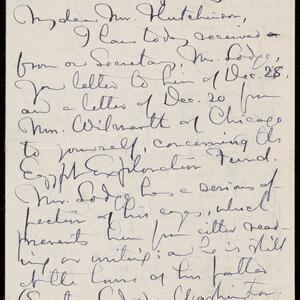 My dear Mr. Hutchinson,
I have today received
from our Secretary, Mr. Lodge,
your letter to him of Dec. 28.
and a letter of Dec. 20 from
Mrs. Wilmarth of Chicago
to yourself, concerning the
Egypt Exploration Fund.
Mr. Lodge has a serious af-
fection of his eyes, which
prevents him from either read-
ing or writing: & he is still
at the home of his father
Washington